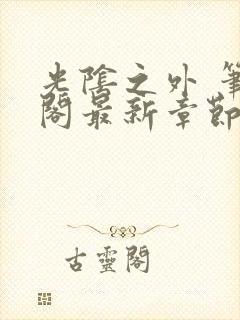 光陰之外 筆
閣最新章節
古靈閣